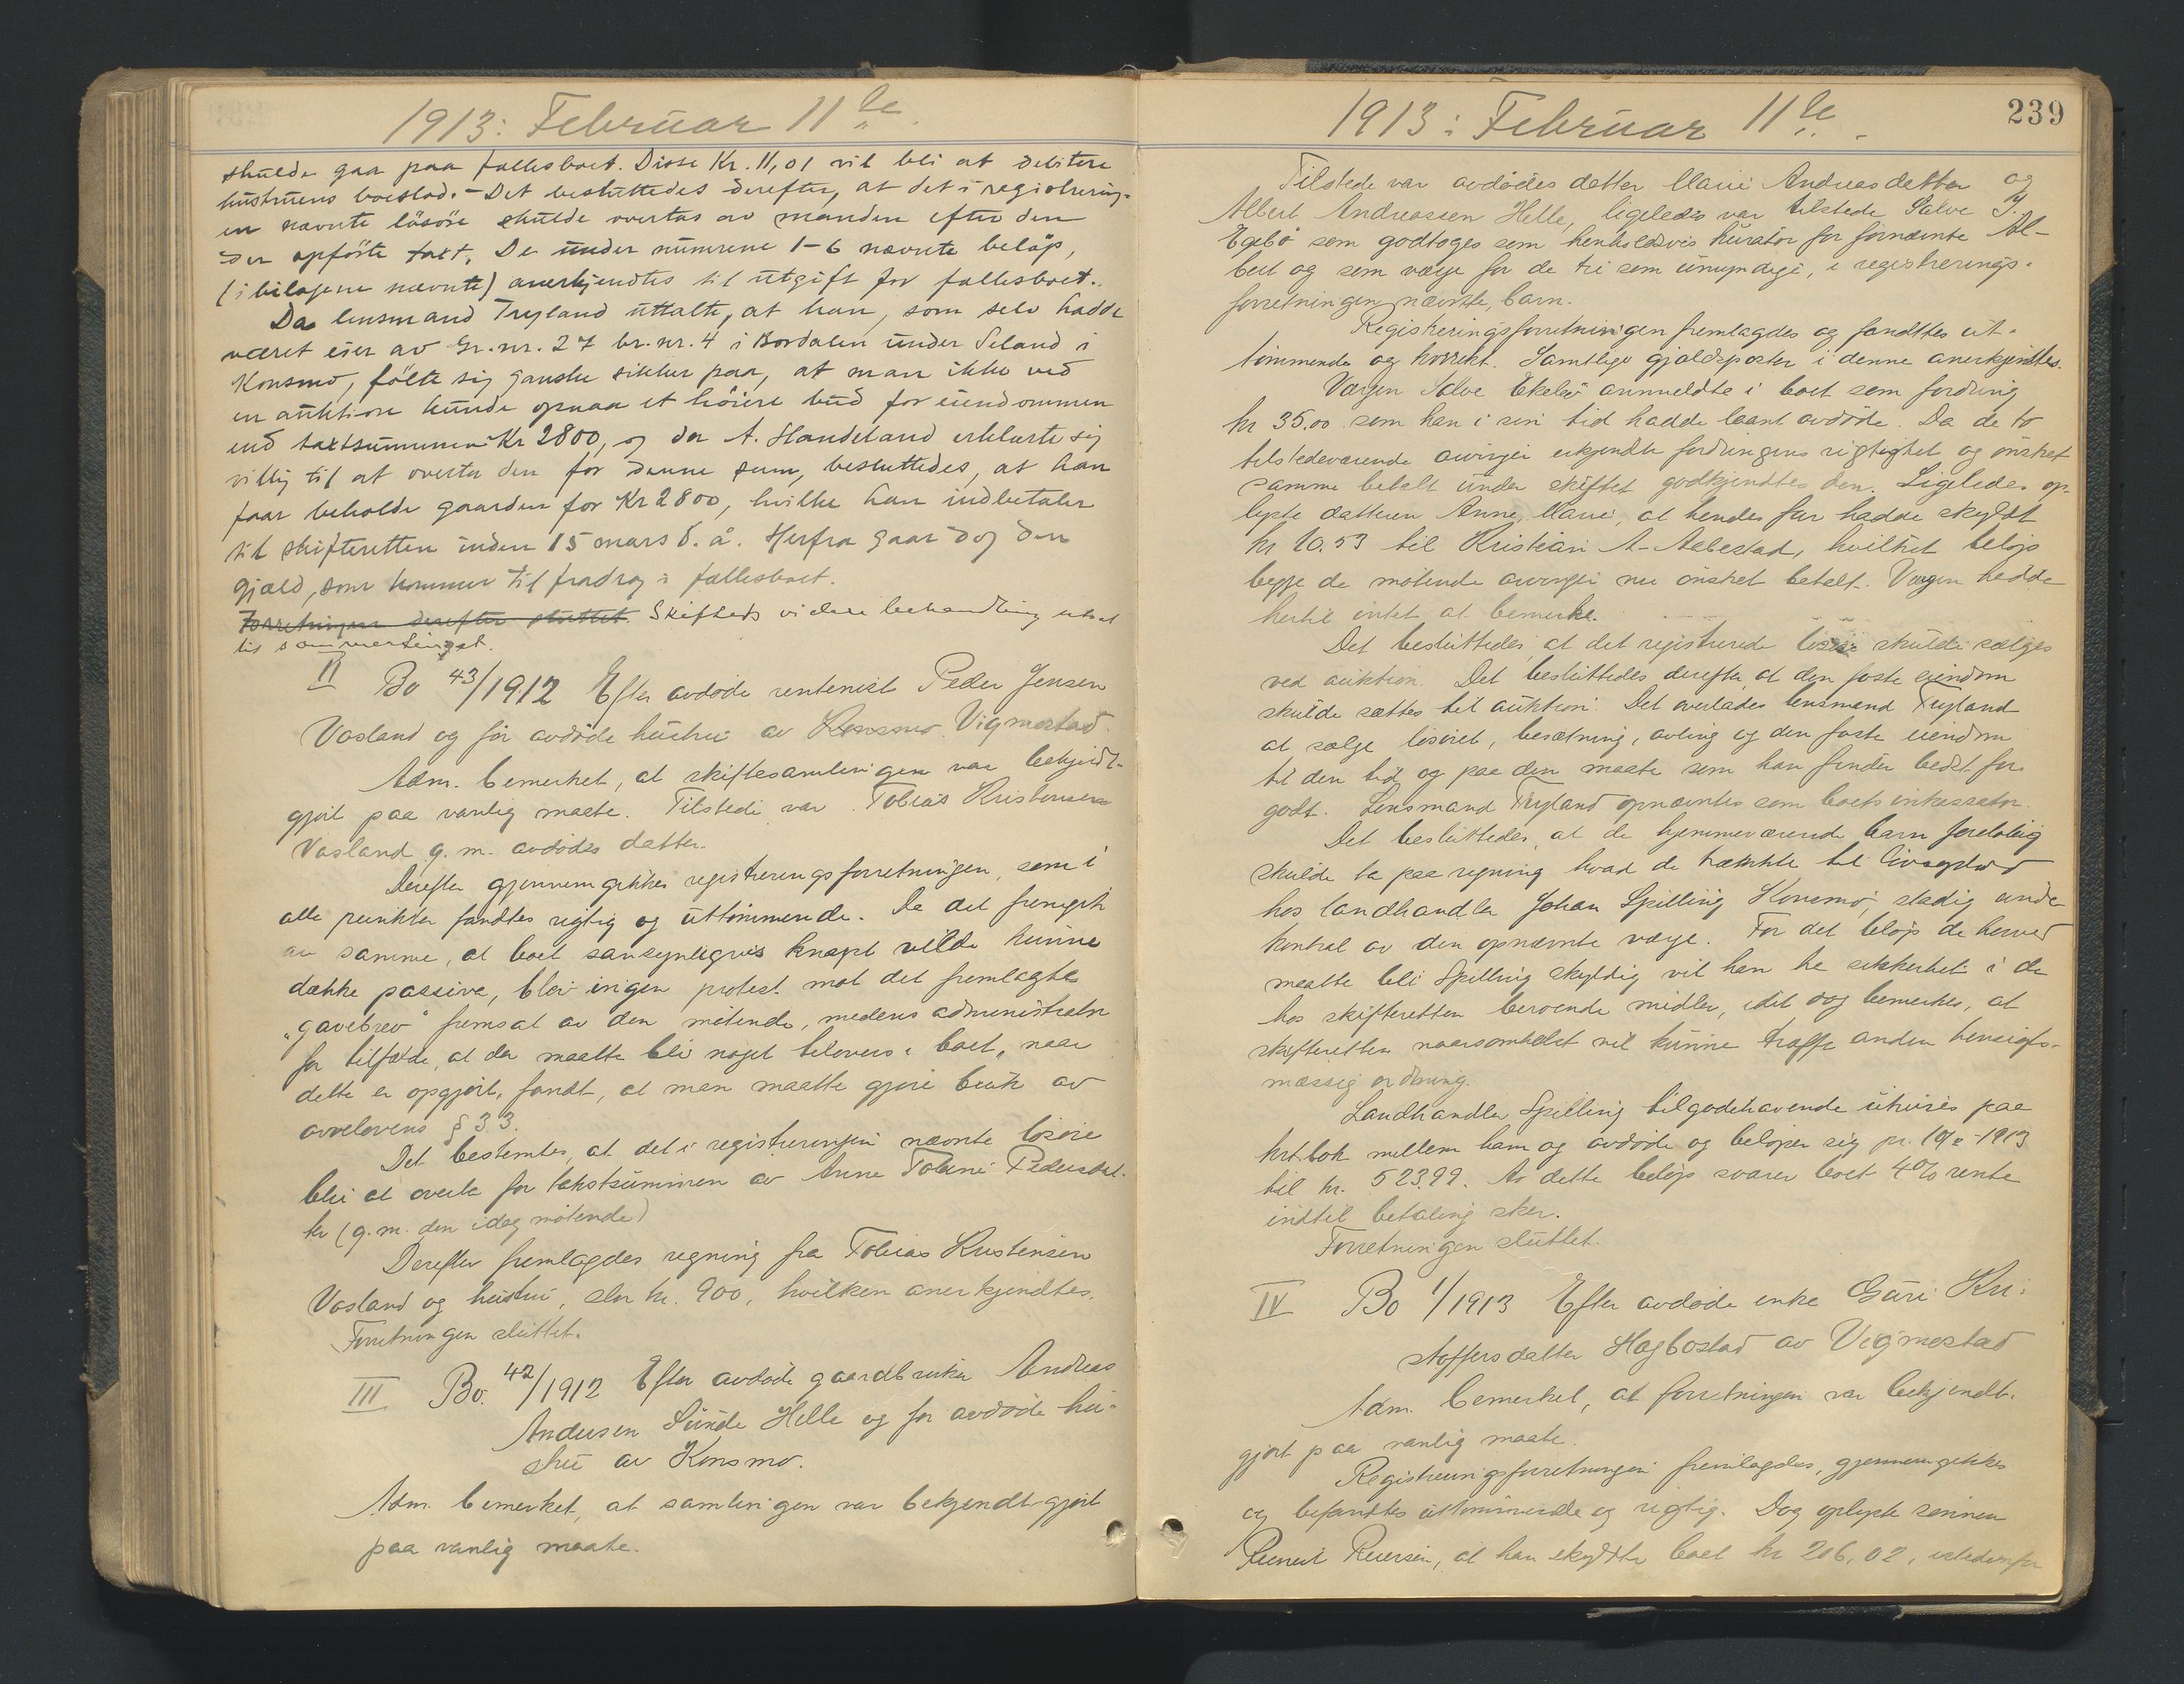 1913: Februar 11te
skulde gaa paa fællesboet. Disse Kr. 11,01 vil bli at debitere
hustruens boeslod. - Det besluttedes derefter, at det i registrering-
en nævnte løsøre skulde overtas av manden efter den
der opførte taxt. De under numrene 1-6 nævnte beløp,
(i bilagene nævnte) anerkjendtes til utgift for fællesboet.
Da lensmand Tryland uttalte, at han, som selv hadde
været eier av Gr.nr. 27 br.nr. 4 i Bordalen under Seland i
Konsmo, følte sig ganske sikker paa, at man ikke ved
en auktion kunde opnaa et høiere bud for eiendommen
end taxtsummen Kr 2800, og da A. Handeland erklærte sig
villig til at overta den for denne sum, besluttedes, at han
faar beholde gaarden for Kr 2800, hvilke han indbetaler
til skifteretten inden 15 mars d. å. Herfra gaar dog den
gjæld, som kommer til fradrag i fællesboet.
Forretningen derefter sluttet. Skiftets videre behandling utsat
til sommertinget.
II Bo 43/1912 Efter avdøde rentenist Peder Jensen
Vasland og før avdøde hustru av Konsmo. Vigmostad.
Adm. bemerket, at skiftesamlingen var bekjendt-
gjort paa vanlig maate. Tilstede var Tobias Kristensen
Vasland g. m. avdødes datter.
Derefter gjennemgikkes registreringsforretningen, som i
alle punkter fandtes rigtig og uttømmende. Da det fremgik
av samme, at boet sansynligvis knapt vilde kunne
dække passiva, blev ingen protest mot det fremlagte
"gavebrev" fremsat av den møtende, medens administrator
for tilfælde, at der maatte bli noget tilovers i boet, naar
dette er opgjort, fandt, at man maatte gjøre bruk av
arvelovens § 33.
Det bestemtes, at det i registreringen nævnte løsøre
blir at overta for takstsummen av Anne Tobine Pedersdat-
ter (g. m. den idag møtende)
Derefter fremlagdes regning fra Tobias Kristensen
Vasland og hustru, stor kr. 900, hvilken anerkjendtes.
Forretningen sluttet.
III Bo. 42/1912 Efter avdøde gaardbruker Andreas
Andersen Sunde Helle og før avdøde hu-
stru av Konsmo.
Adm. bemerket, at samlingen var bekjendt-gjort
paa vanlig maate.
1913: Februar 11te.
239
Tilstede var avdødes datter Marie Andreasdatter og
Albert Andreassen Helle, ligeledes var tilstede Salve J.
Egebø som godtoges som henholdsvis kurator for fornævnte Al-
bert og som værge for de tre som umyndige, i registrerings-
forretningen nævnte, barn.
Registreringsforretningen fremlagdes og fandtes ut-
tømmende og korrekt. Samtlige gjældsposter i denne anerkjendtes.
Værgen Salve Ekebø anmeldte i boet som fordring
kr 35.00 som han i sin tid hadde laant avdøde. Da de to
tilstedeværende arvinger erkjendte fordringens rigtighet og ønsket
samme betalt under skiftet godkjendtes den. Ligeledes op-
lyste datteren Anne Marie, at hendes far hadde skyldt
kr 10.53 til Kristian A. Aabestad, hvilket beløp
begge de møtende arvinger nu ønsket betalt. Værgen hadde
hertil intet at bemerke.
Det besluttedes, at det registrerede løsøre skulde sælges
ved auktion. Det besluttedes derefter, at den faste eiendom
skulde sættes til auktion. Det overlades lensmand Tryland
at sælge løsøret, besætning, avling og den faste eiendom
til den tid og paa den maate som han finder bedst for
godt. Lensmand Tryland opnævntes som boets inkassator.
Det besluttedes, at de hjemmeværende barn foreløbig
skulde ta paa regning hvad de trængte til livsophold
hos landhandler Johan Spilling Konsmo, stadig under
kontrol av den opnævnte værge. For det beløp de herved
maatte bli Spilling skyldig vil han ha sikkerhet i de
hos skifteretten beroende midler, idet dog bemerkes, at
skifteretten naarsomhelst vil kunne træffe anden hensigts-
mæssig ordning.
Landhandler Spilling tilgodehavende utvises paa
krt.bok mellem ham og avdøde og beløper sig pr. 10/2-1913
til kr. 523.99. Av dette beløp svarer boet 4% rente
indtil betaling sker.
Forretningen sluttet.
IV Bo 1/1913 Efter avdøde enke Guri Kri-
stoffersdatter Høgbostad av Vigmostad
Adm. bemerket, at forretningen var bekjendt-
gjort paa vanlig maate.
Registreringsforretningen fremlagdes, gjennemgikkes
og befandtes uttømmende og rigtig. Dog oplyste sønnen
Reiersen, at han skyldte boet kr 206,02, istedenfor